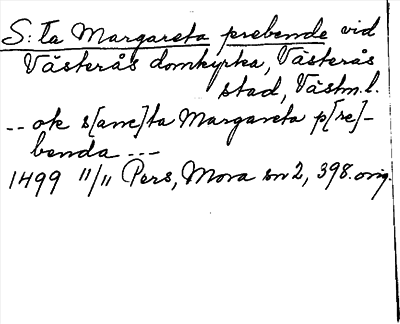 S:ta Margareta prebende vid
Västerås domkyrka, Västerås
stad, Västm.l.
-- ok s[anc]ta Margareta p[re]-
benda ---
1499 11/11 Pers, Mora sn 2, 398. orig.